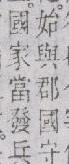 始與郡國守
國家當發兵